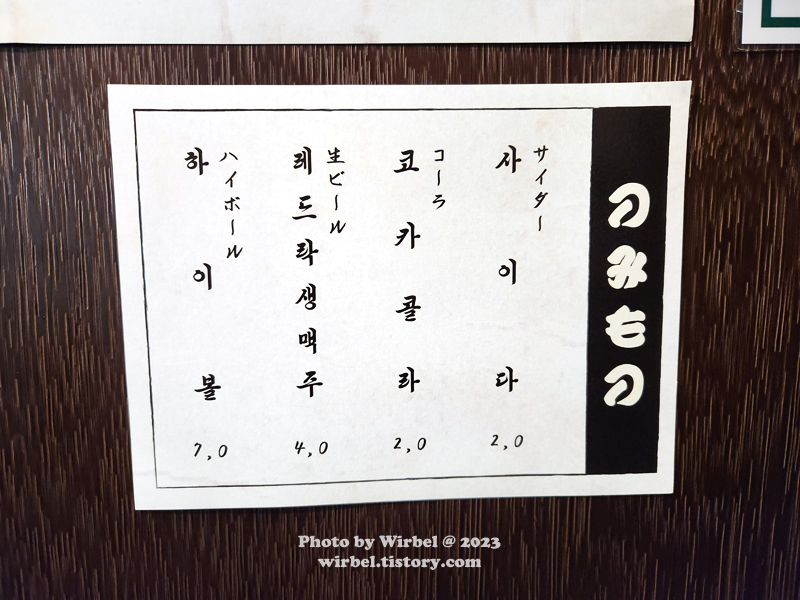 のみもの
サイダー
사이다
2,0
コーラ
코카콜라
2,0
生ビール
레드락생맥주
4,0
ハイボール
하이볼
7,0
Photo by Wirbel @ 2023
wirbel.tistory.com